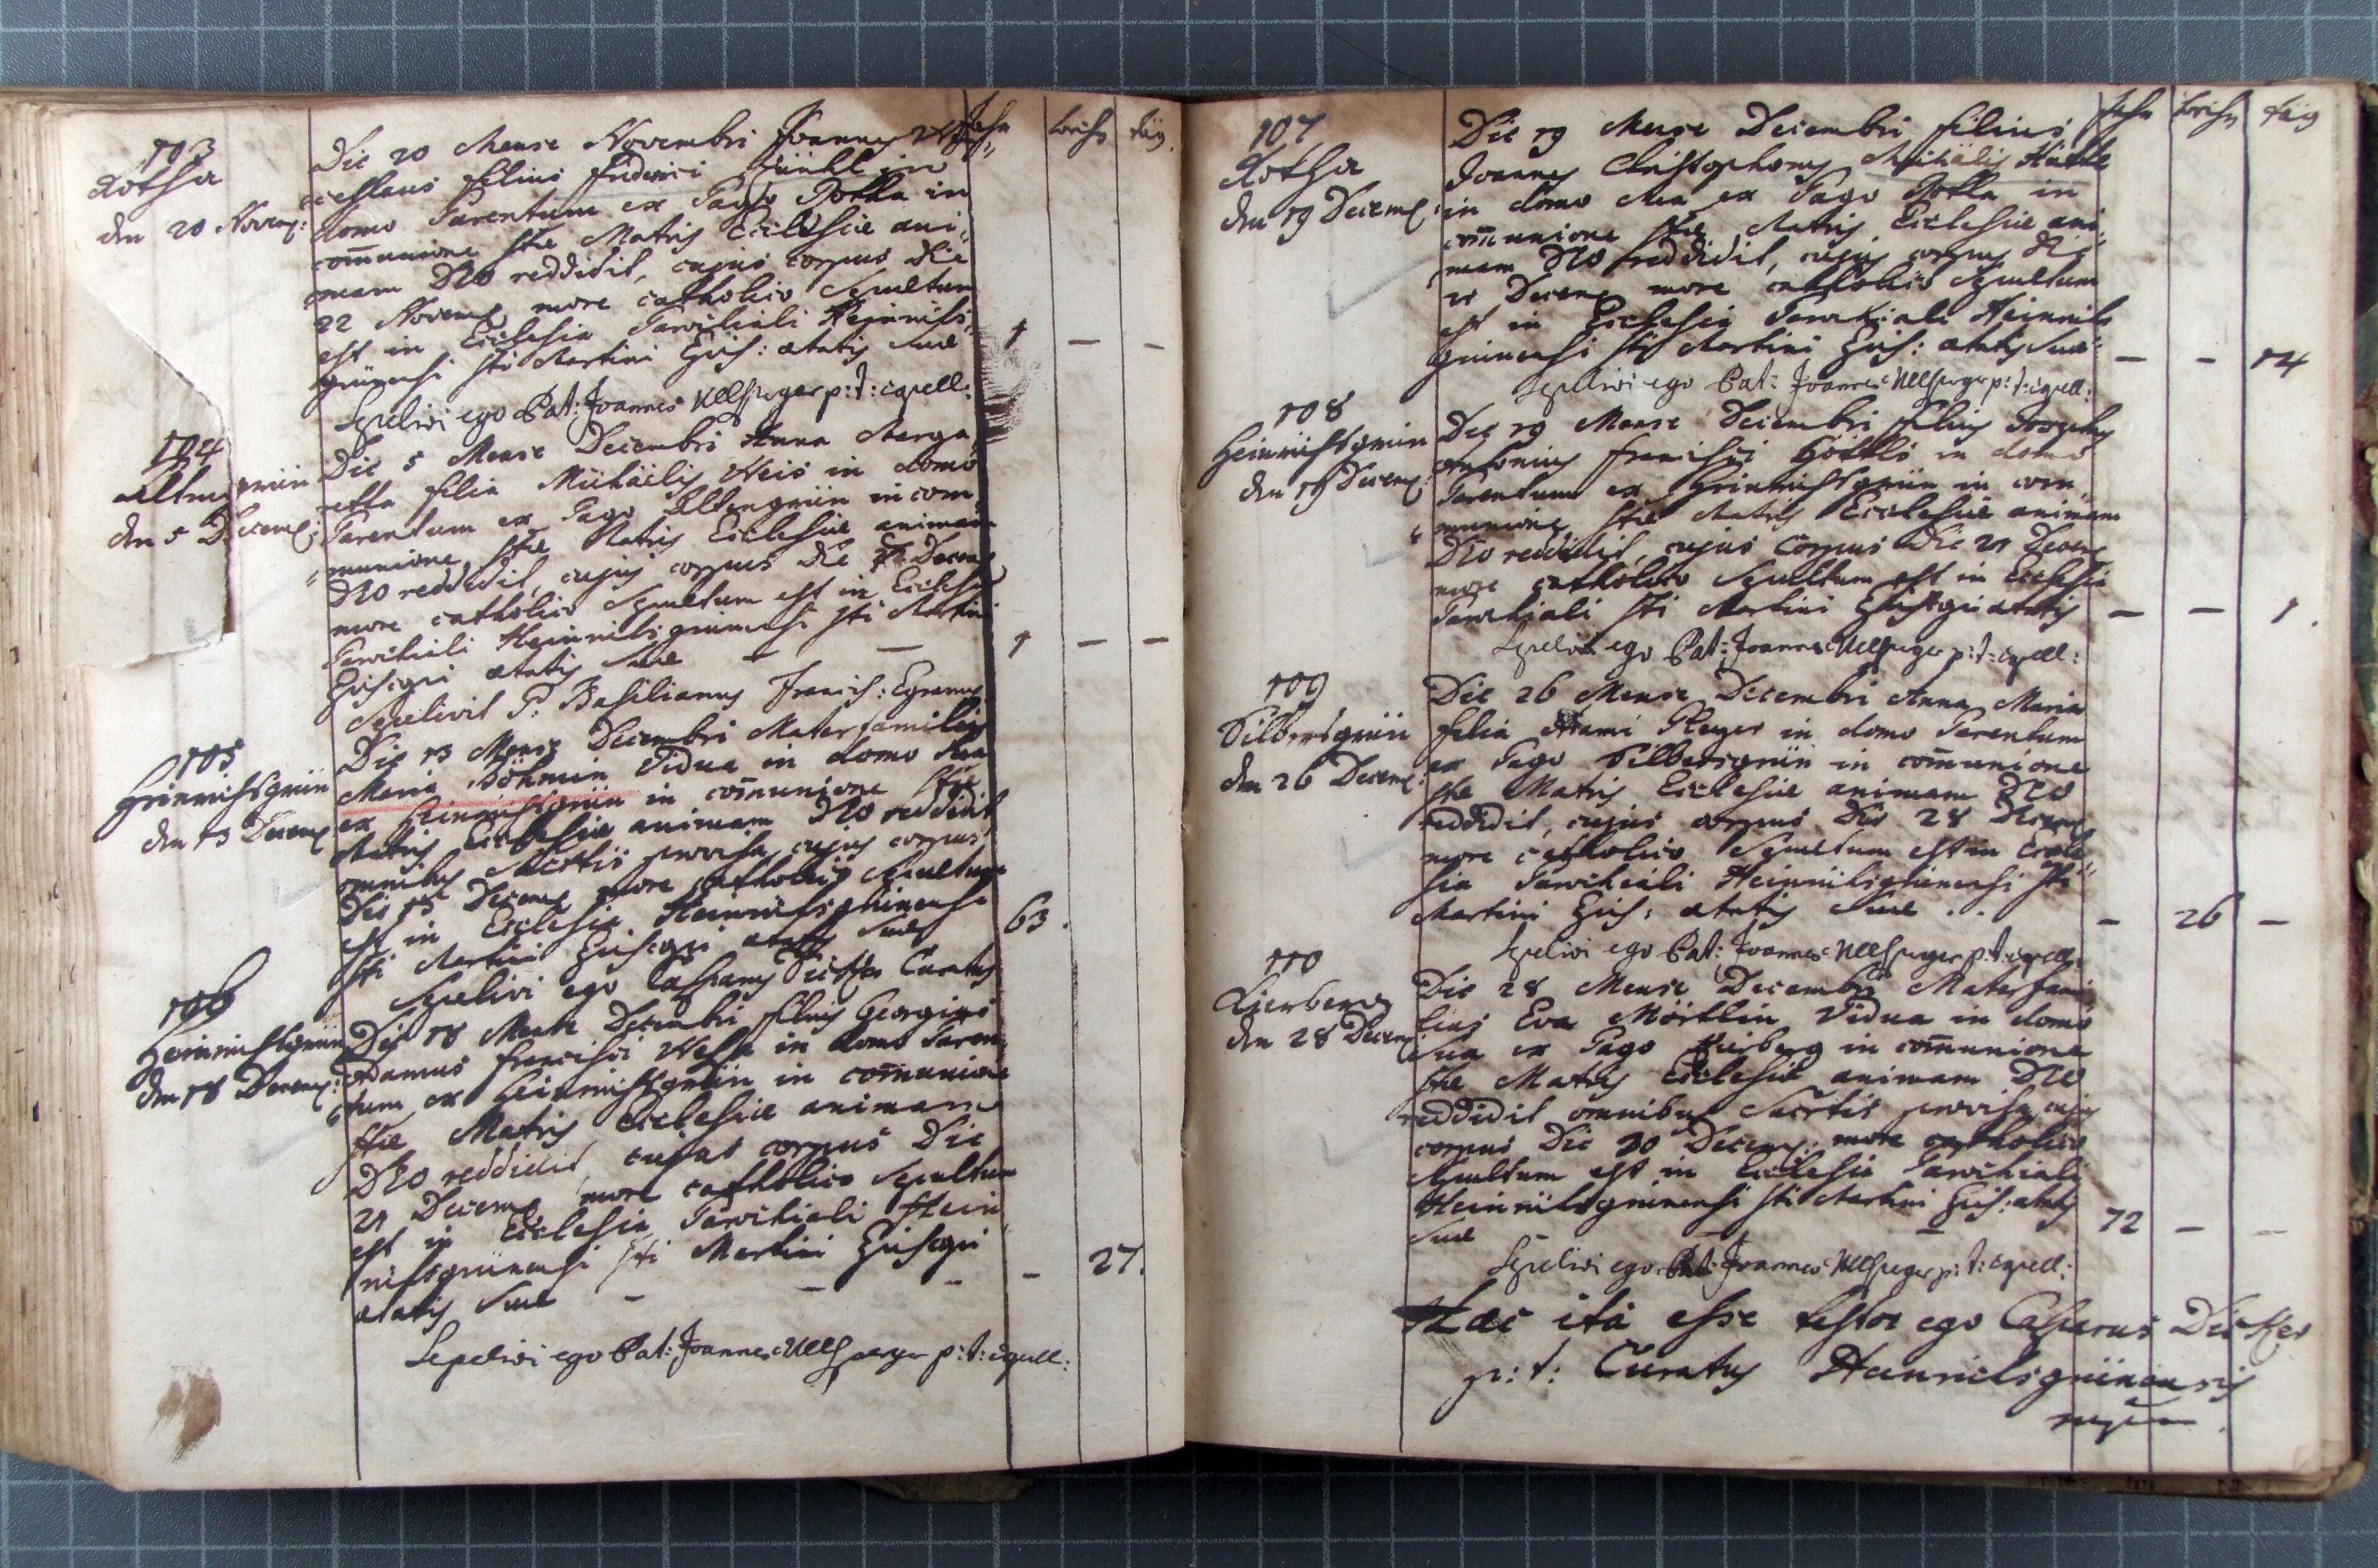 Jahr Woch Täg
103
Rotha
den 20 Novem:
Die 20 Mense Novembri Joannes
filius Friderici in
domo Parentum ex Pago Rotha in
communione Stæ Matris Ecclesiæ ani=
mam Deo reddidit, cujus corpus Die
22 Novem: more catholico Sepultum
est in Ecclesia Parochiali Heinrichs=
grünensi Sti Martini Epis: ætatis Suæ 1 — —
Sepelivi ego Pat: Joannes Ullsperger p: t: capell:
104
Altengrün
den 5 Decem:
Die 5 Mense Decembri Anna Marga=
retha filia Michäelis Weis in domo
Parentum ex Pago Altengrün in com=
=munione Stæ Matris Ecclesiæ animam
Deo reddidit, cujus corpus Die 7 Decem
more catholico Sepultum est in Ecclesia
Parochiali Heinrichsgrünensi Sti Martini
Episcopi ætatis Suæ — — 1 — —
Sepelivit P: Basilianus Francis: Egranus
105
Heinrichsgrün
den 13 Decem
Die 13 Mense Decembri Mater familias
Maria Böhmin Vidua in domo Sua
ex Heinrichsgrün in communione Stæ
Matris Ecclesiæ animam Deo reddidit
omnibus provisa, cujus corpus
Die 15 Decem more catholico Sepultum
est in Ecclesia Heinrichsgrünensi
Sti Martini Episcopi ætatis Suæ 63.
Sepelivi ego Casparus Curatus
106
Heinrichsgrün
den 18 Decem:
Die 18 Mense Decembri filius Georgius
Adamus Francisci in domo Paren=
=tum ex Heinrichsgrün in communione
Stæ Matris Ecclesiæ animam
Deo reddidit, cujus corpus Die
21 Decem more catholico Sepultum
est in Ecclesia Parochiali Hein=
richsgrünensi Sti Martini Episcopi
ætatis Suæ — — — — 27.
Sepelivi ego Pat: Joannes Ullsperger p: t: capell:
Jahr Woch Täg
107
Rotha
den 19 Decem:
Die 19 Mense Decembri filius
Joannes Christophorus Michälis
in domo Sua ex Pago Rotha in
communione Stæ Matris Ecclesiæ ani=
mam Deo reddidit, cujus corpus Die
21 Decem more catholico Sepultum
est in Ecclesia Parochiali Heinrichs
grünensi Sti Martini Epis: ætatis Suæ — — 14
Sepelivi ego Pat: Joannes Ullsperger p: t: capell:
108
Heinrichsgrün
den 19 Decem:
Die 19 Mense Decembri filius Josephus
Antonius Francisci in domo
Parentum ex Heinrichsgrün in com=
=munione Stæ Matris Ecclesiæ animam
Deo reddidit, cujus Corpus Die 21 Decem
more catholico Sepultum est in Ecclesia
Parochiali Sti Martini Episcopi ætatis — — 1.
Sepelivi ego Pat: Joannes Ullsperger p: t: capell:
109
Silbersgrün
den 26 Decem:
Die 26 Mense Decembri Anna Maria
filia Adami Pleyer in domo Parentum
ex Pago Silbersgrün in communione
Stæ Matris Ecclesiæ animam Deo
reddidit, cujus corpus Die 28 Decem
more catholico Sepultum est in Eccle=
sia Parochiali Heinrichsgrünensi Sti
Martini Epis: ætatis Suæ . . — 26 —
Sepelivi ego Pat: Joannes Ullsperger p: t: capell:
110
den 28 Decem
Die 28 Mense Decembri Mater fami=
lias Eva Vidua in domo
Sua ex Pago in communione
Stæ Matris Ecclesiæ animam Deo
reddidit omnibus provisa, cujus
corpus Die 30 Decem: more catholico
Sepultum est in Ecclesia Parochiali
Heinrichsgrünensi Sti Martini Epis: ætatis
Suæ — 72 — —
Sepelivi ego Pat: Joannes Ullsperger p: t: capell:
Hæc ità esse testor ego Casparus
p: t: Curatus Heinrichsgrünensis